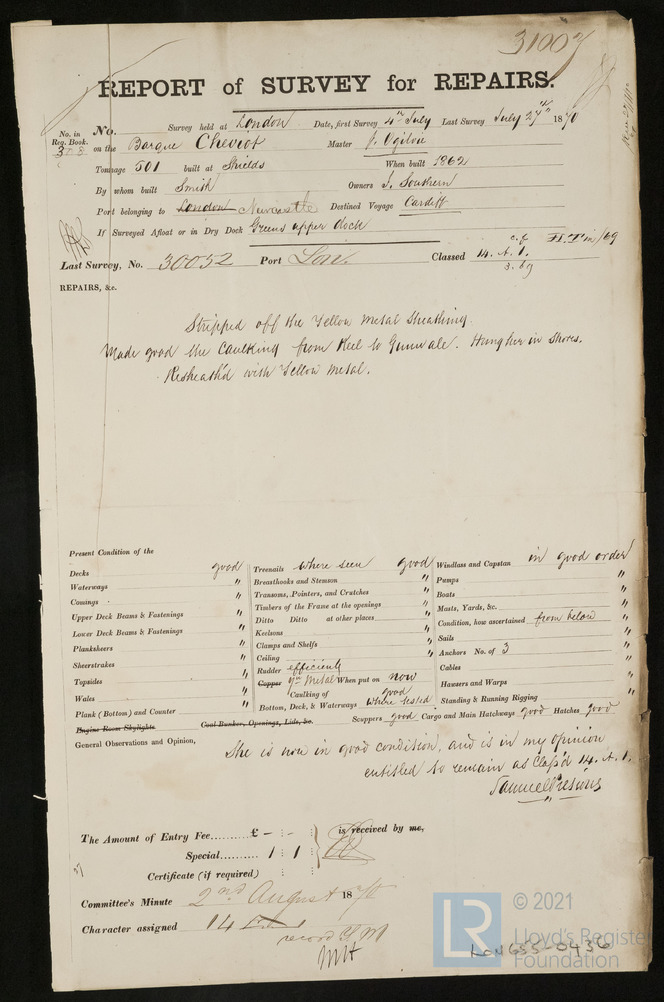 31007
REPORT of SURVEY for REPAIRS.
No. Survey held at London Date, first Survey 4th July Last Survey July 27th 1870
No. in Reg. Book.
on the Barque Cheviot Master J. Ogilvie
Tonnage 501 built at Shields When built 1862
By whom built Smith Owners J. Southern
Port belonging to London Newcastle Destined Voyage Cardiff
If Surveyed Afloat or in Dry Dock Greens upper dock
c.f H.T. in/69
Last Survey, No. 30052 Port Lon. Classed 14. A. 1.
3.69
REPAIRS, &c.
Stripped off the Yellow Metal Sheathing.
Made good the Caulking from Keel to Gunwale. Hung her in Shores.
Resheath'd with Yellow Metal.
Present Condition of the
Decks good
Waterways "
Comings "
Upper Deck Beams & Fastenings "
Lower Deck Beams & Fastenings "
Planksheers "
Sheerstrakes "
Topsides "
Wales "
Plank (Bottom) and Counter "
Engine Room Skylights Coal Bunker, Openings, Lids, &c.
Treenails where seen good
Breasthooks and Stemson "
Transoms, Pointers, and Crutches "
Timbers of the Frame at the openings "
Ditto Ditto at other places "
Keelsons "
Clamps and Shelfs "
Ceiling "
Rudder efficient
Copper Metal When put on now
Caulking of good
Bottom, Deck, & Waterways where tested
Windlass and Capstan in good order
Pumps "
Boats "
Masts, Yards, &c. "
Condition, how ascertained from below
Sails "
Anchors No. of 3 "
Cables "
Hawsers and Warps "
Standing & Running Rigging "
Scuppers good Cargo and Main Hatchways good Hatches good
General Observations and Opinion,
She is now in good condition, and is in my opinion
entitled to remain as Class'd 14. A. 1.
Samuel Preston
The Amount of Entry Fee.......... £ - : - : is received by me,
Special.......... 1 : 1 :
Certificate (if required)
Committee's Minute 2nd August 1870
Character assigned 14
record
LR
© 2021
Lloyd's Register
Foundation
LON655-0436